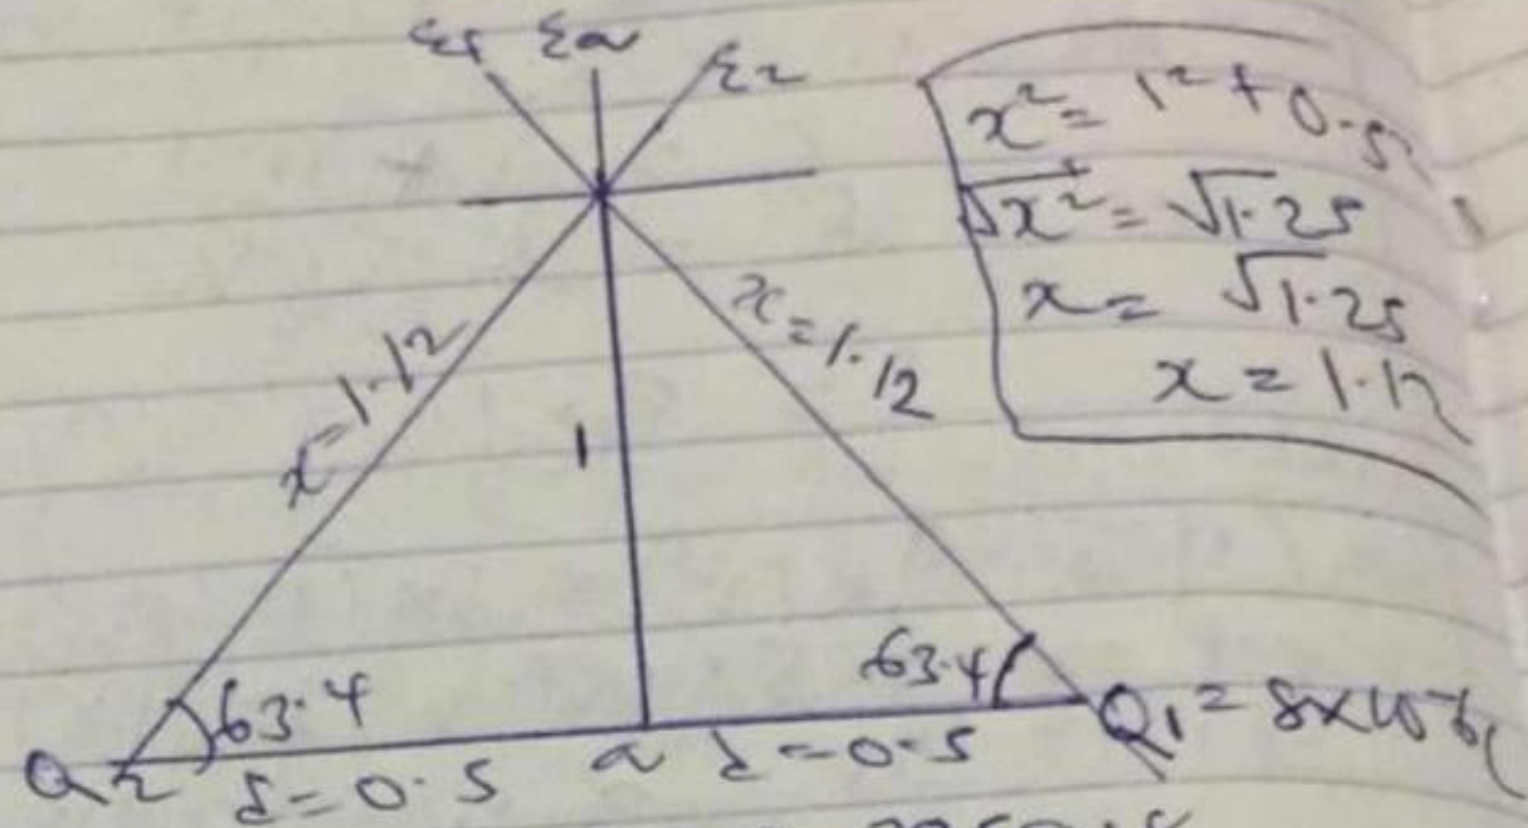 ξ1 ξa ξ2
x² = 1² + 0.5
√x² = √1.25
x = √1.25
x = 1.12
x = 1.12
x = 1.12
1
63.4
63.4
Q2
d = 0.5
a
d = 0.5
Q1 = 8×10⁻⁶C